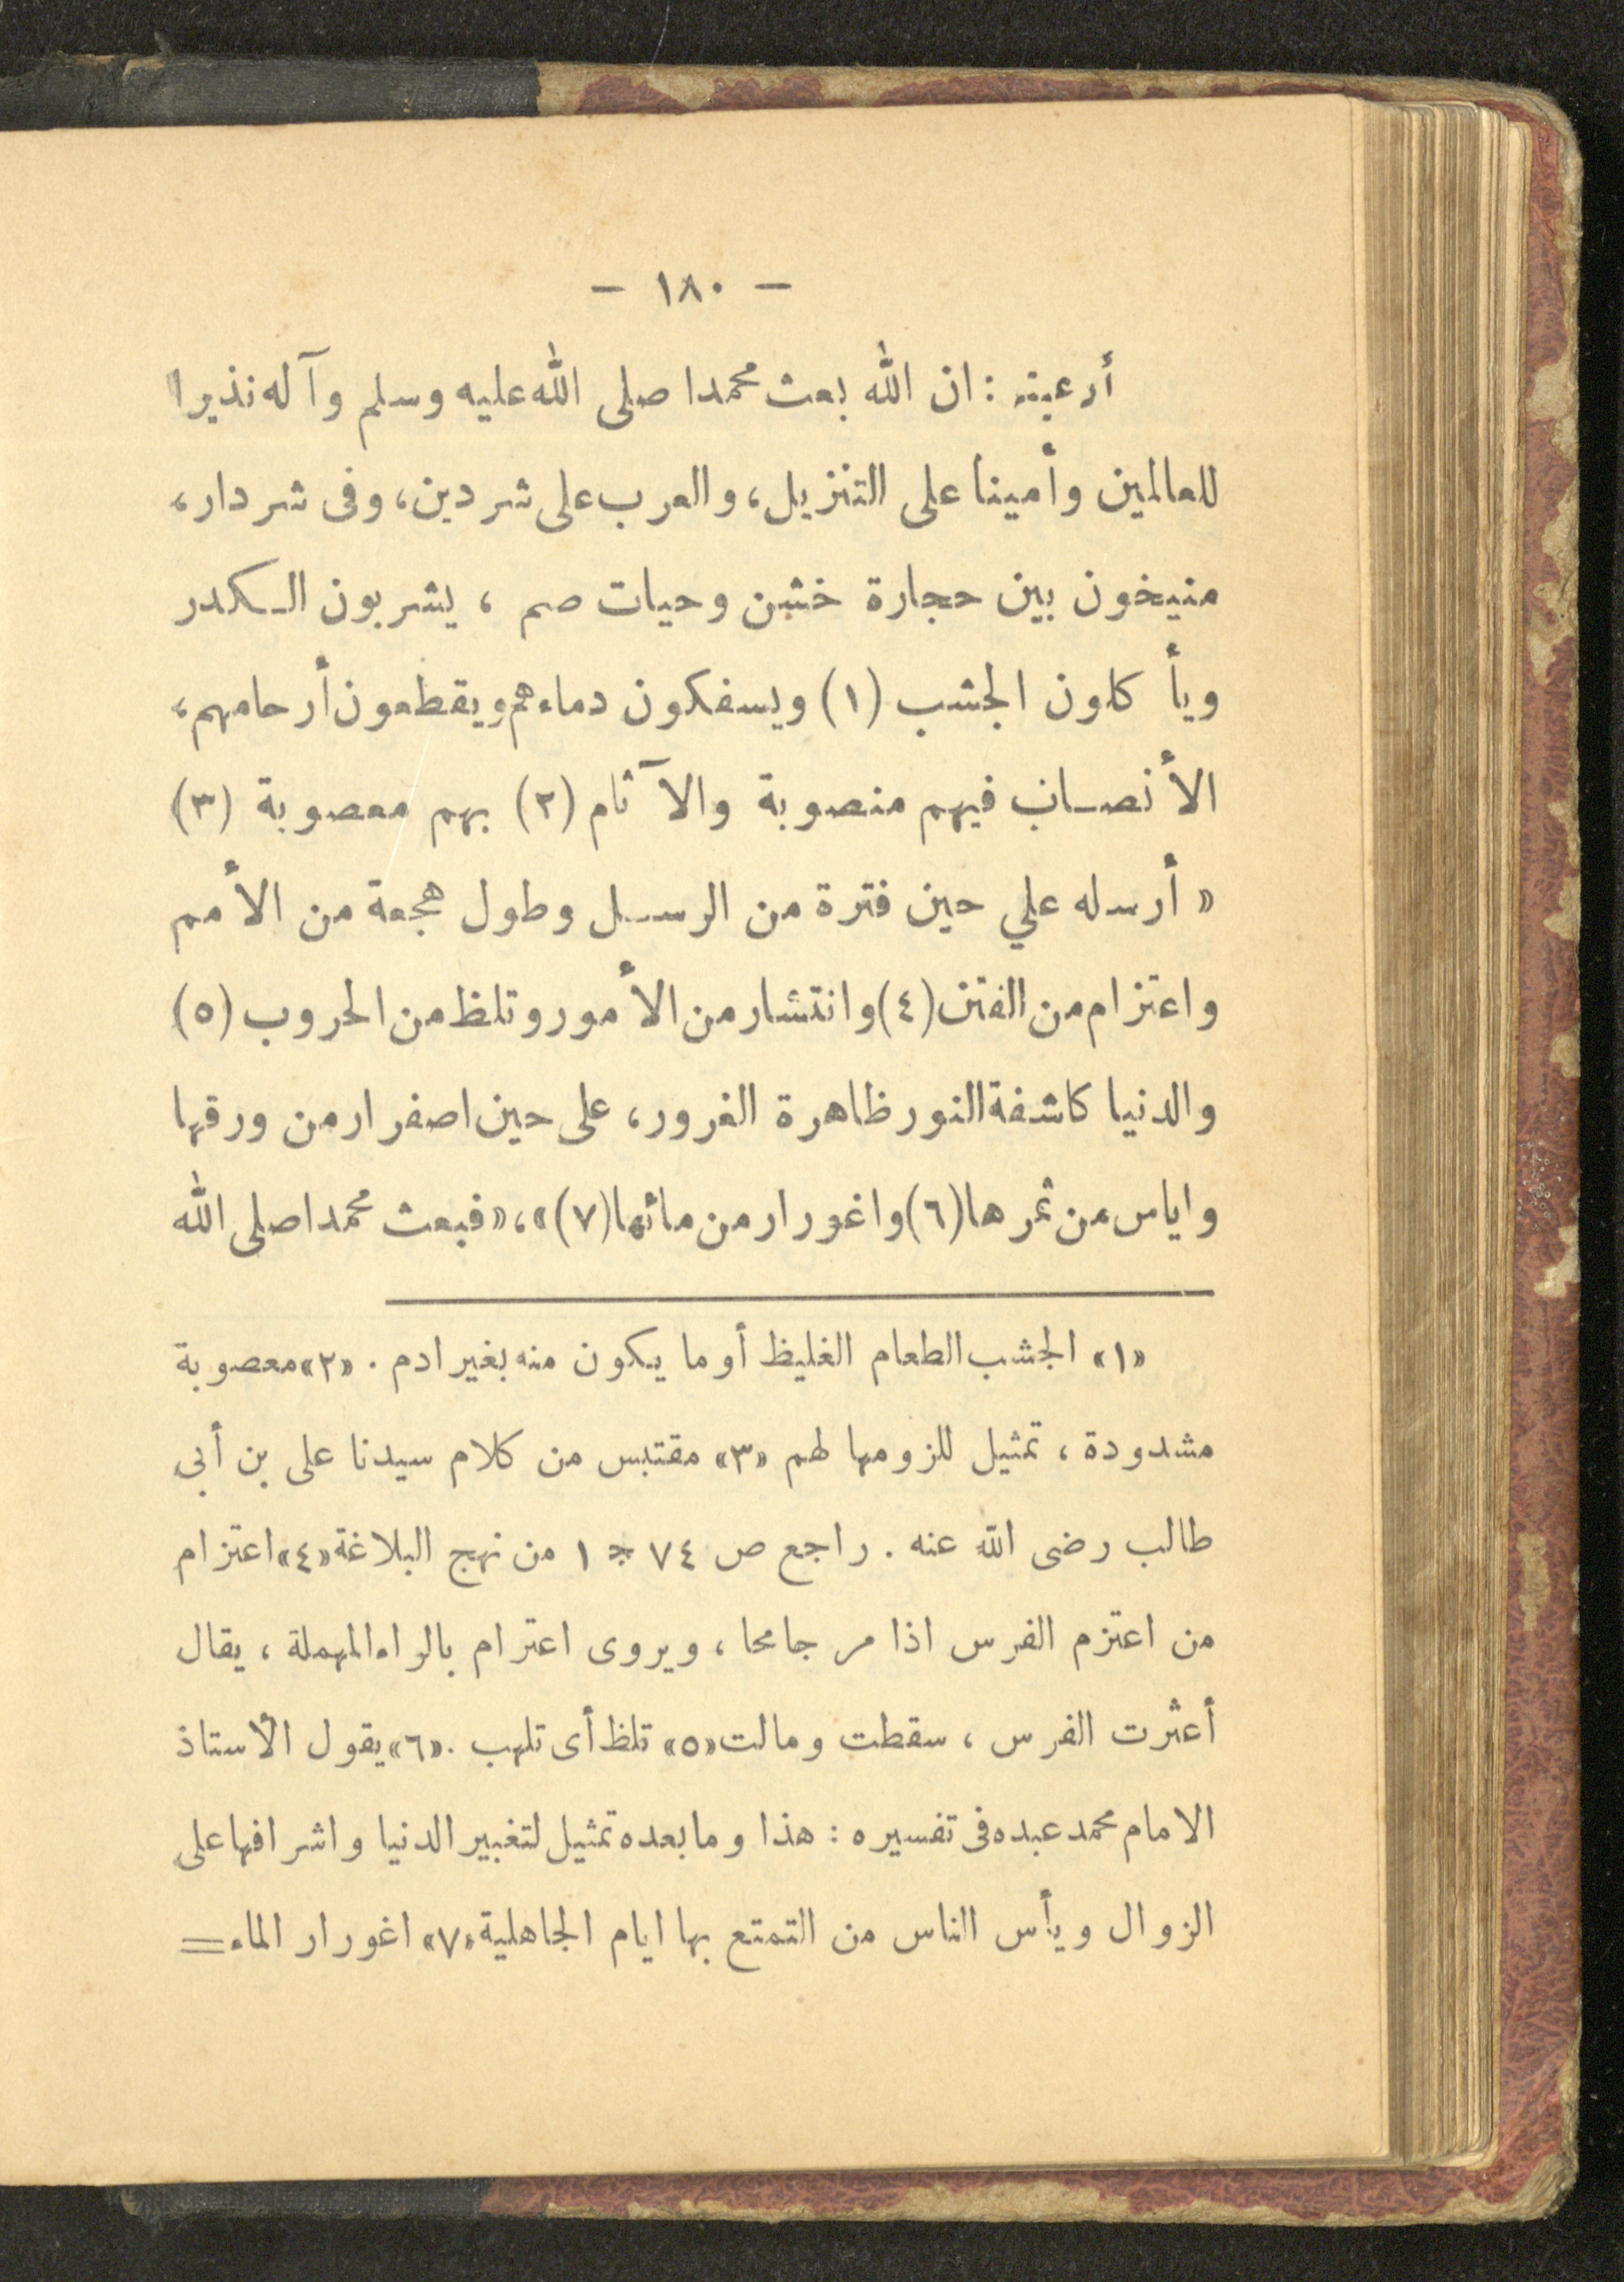 — ١٨٠ —
أرعينه : ان الله بعث محمدا صلى الله عليه وسلم وآله نذيرا
للعالمين وأمينا على التنزيل، والعرب على شر دين، وفى شر دار،
منيخون بين حجارة خشن وحيات صم ، يشربون الـكدر
ويأ كلون الجشب (١) ويسفكون دماءهم ويقطعون أرحامهم،
الأنصاب فيهم منصوبة والآثام (٢) بهم معصوبة (٣)
« أرسله علي حين فترة من الرسل وطول هجعة من الأمم
واعتزام من الفتن (٤) وانتشار من الأمور وتلظ من الحروب (٥)
والدنيا كاشفة النور ظاهرة الغرور، على حين اصفرار من ورقها
واياس من ثمرها (٦) واغورار من مائها (٧)»، «فبعث محمدا صلى الله
«١» الجشب الطعام الغليظ أو ما يكون منه بغير ادم . «٢» معصوبة
مشدودة ، تمثيل للزومها لهم «٣» مقتبس من كلام سيدنا على بن أبي
طالب رضى الله عنه . راجع ص ٧٤ ج ١ من نهج البلاغة «٤» اعتزام
من اعتزم الفرس اذا مر جامحا ، ويروى اعترام بالراء المهملة ، يقال
أعثرت الفرس ، سقطت ومالت «٥» تلظ أى تلهب . «٦» يقول الأستاذ
الامام محمد عبده فى تفسيره : هذا وما بعده تمثيل لتغيير الدنيا واشرافها على
الزوال ويأس الناس من التمتع بها ايام الجاهلية «٧» اغورار الماء =